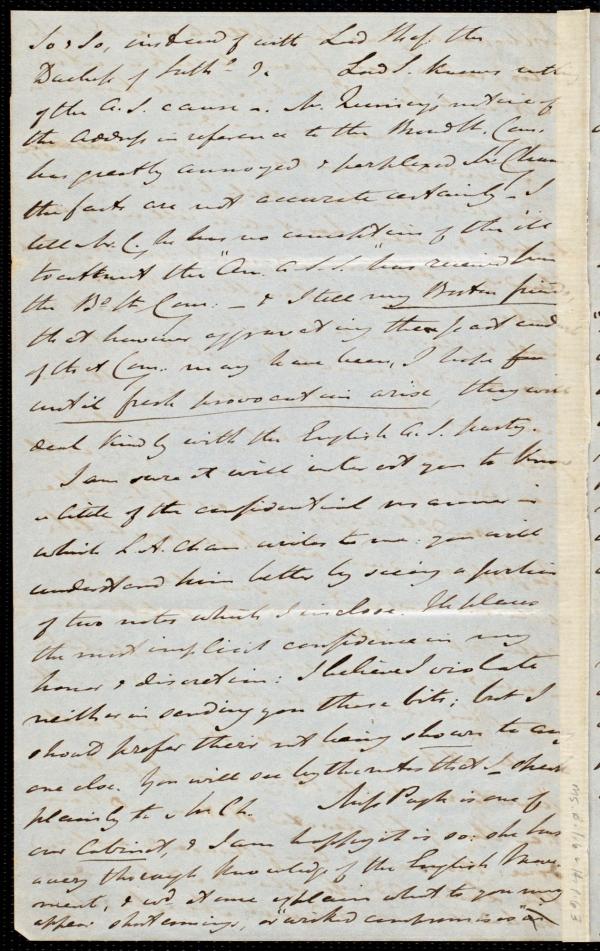 So & So, instead of with Lord Shaf. the
Duchess of Suthd. &c. Lord S. knows nothing
of the A.S. cause. Mr. Quincy's notice of
the Address in reference to the Broad St. Com.
has greatly annoyed & perplexed Mr. Cham
the facts are not accurate certainly - I
tell Mr. C. he has no conception of the ill
treatment the "Am. A.S.S." has received from
the Bd. St. Com: - & I tell my Boston friends
that however aggravating the past cond
of that Com. may have been, I hope
until fresh provocation arise, they will
deal kindly with the English A.S. party.
I am sure it will interest you to know
a little of the confidential manner in
which L.A. Cham. writes to me: you will
understand him better by seeing a portion
of two notes which I inclose. He places
the most implicit confidence in my
honor & discretion: I believe I violate
neither in sending you these bits; but I
should prefer their not being shown to any
one else. You will see by the notes that I speak
plainly to Mr Ch. Miss Pugh is one of
our Cabinet, & I am happy it is so: she has
a very thorough knowledge of the English move
ment, & wd. at once explain what to you may
appear shortcomings, or "wicked compromises"
MS.A.1.2 v. p. 163